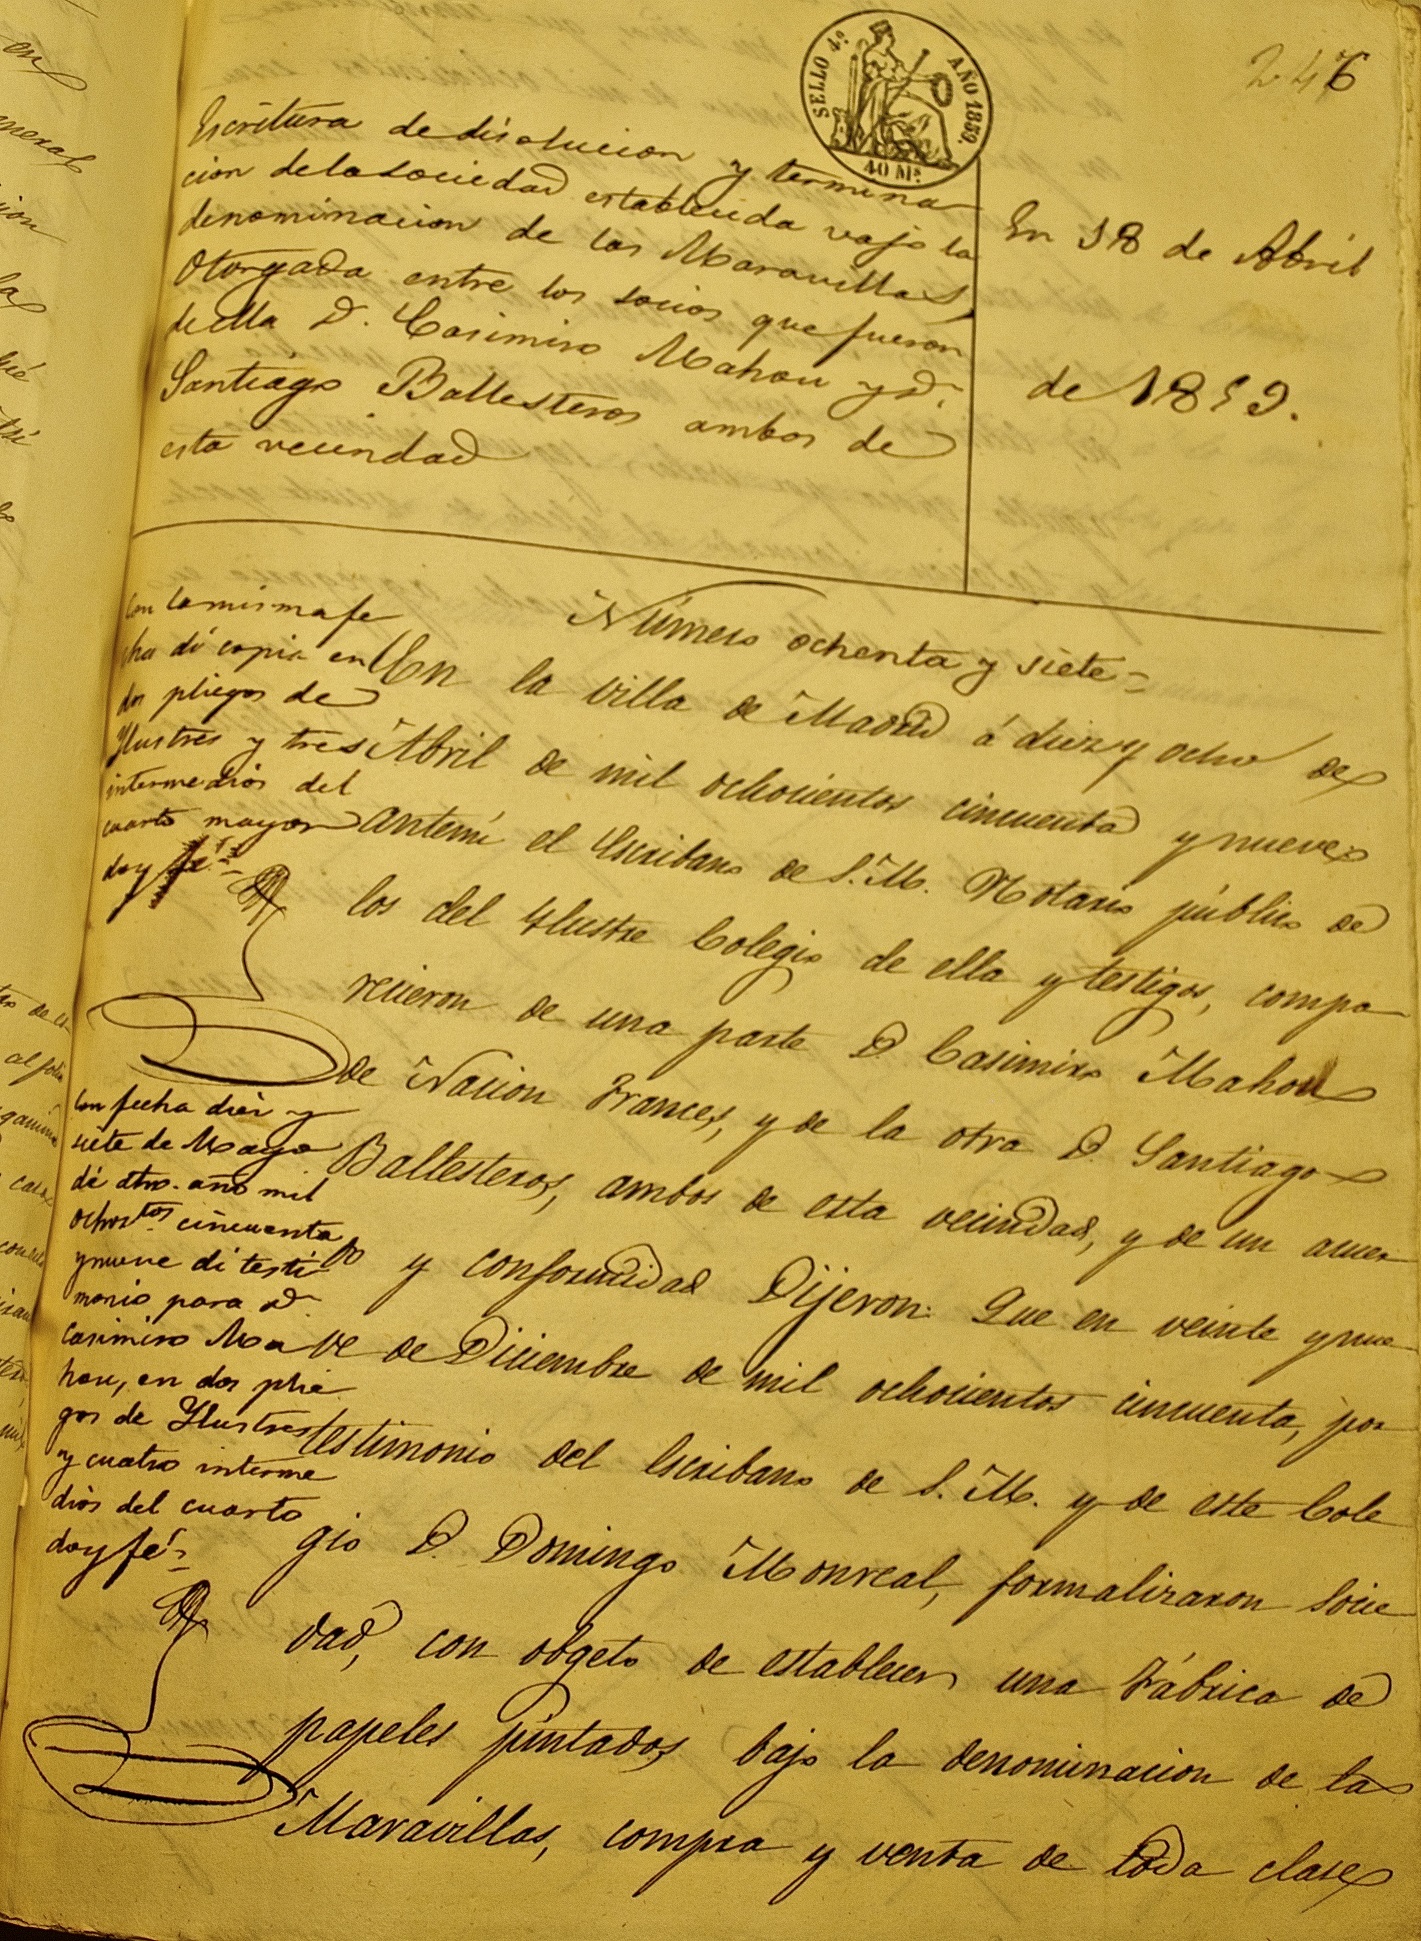 246
SELLO 4.º AÑO 1859.
40 Mˢ.
Escritura de disolucion y termina
cion de la sociedad establecida vajo la
denominacion de las Maravillas,
Otorgada entre los socios que fueron
de ella D. Casimiro Mahou y D.
Santiago Ballesteros ambos de
esta vecindad
En 18 de Abril
de 1859.
Número ochenta y siete=
En la villa de Madrid á diez y ocho de
Abril de mil ochocientos cincuenta y nueve
antemi el Escribano de S. M. Notario público de
los del Ylustre Colegio de ella y testigos, compa
recieron de una parte D Casimiro Mahou
de Nacion Frances, y de la otra D. Santiago
Ballesteros, ambos de esta vecindad, y de un acuer
do y conformidad Dijeron: Que en veinte y nue
ve de Diciembre de mil ochocientos cincuenta, por
testimonio del Escribano de S. M. y de este Cole
gio D. Domingo Monreal, formalizaron Socie
dad, con obgeto de establecer una Fábrica de
papeles pintados, bajo la denominacion de las
Maravillas, compra y venta de toda clase
Con la misma fe
cha di copia en
dos pliegos de
Ylustres y tres
intermedios del
cuarto mayor
doy fé=
Con fecha diez y
siete de Mayo
de dho. año mil
ochos.tos cincuenta
y nueve di testi
monio para D.
Casimiro Ma
hou, en dos plie
gos de Ylustres
y cuatro interme
dios del cuarto
doy fé=